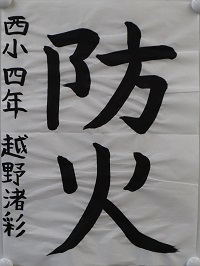 防火
西小四年 越野渚彩